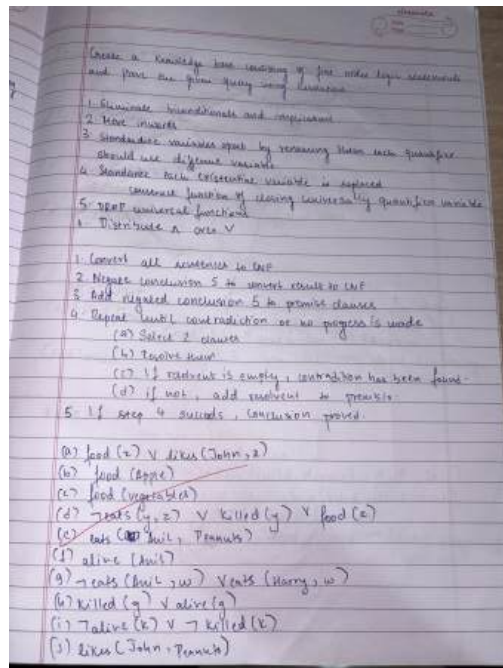 Create a knowledge base consisting of first order logic statements
and prove the given query using Resolution
1. Eliminate biconditionals and implications
2. Move inwards
3. Standardize variables apart by renaming them each quantifier
should use different variable
4. each existential variable is replaced
function of closing universally quantifier variable
5. DROP universal functions
Distribute ∧ over ∨
1. Convert all sentences to CNF
2. Negate conclusion S & convert result to CNF
3. Add negated conclusion S to premise clauses
4. Repeat until contradiction or no progress is made
(a) Select 2 clauses
(b) resolve them
(c) If resolvent is empty, contradiction has been found.
(d) if not, add resolvent to premise
5. If step 4 succeeds, conclusion proved.
(a) food (x) ∨ likes (John, x)
(b) food (Apple)
(c) food (vegetables)
(d) ¬eats (y, z) ∨ killed (y) ∨ food (z)
(e) eats (Anil, Peanuts)
(f) alive (Anil)
(g) ¬eats (Anil, w) ∨ eats (Harry, w)
(h) killed (g) ∨ alive (g)
(i) ¬alive (k) ∨ ¬killed (k)
(j) likes (John, Peanuts)